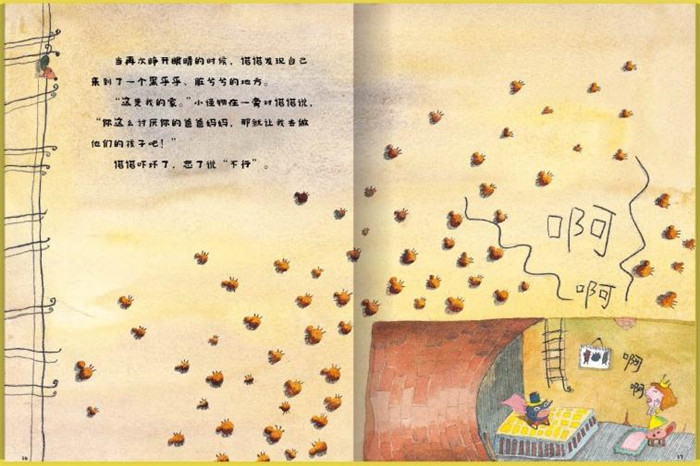 当再次睁开眼睛的时候，偌偌发现自己
来到了一个黑乎乎、脏兮兮的地方。
“这是我的家。”小怪物在一旁对偌偌说，
“你这么讨厌你的爸爸妈妈，那就让我去做
他们的孩子吧！”
偌偌吓坏了，忘了说“不行”。
啊
啊
啊
啊
16
17